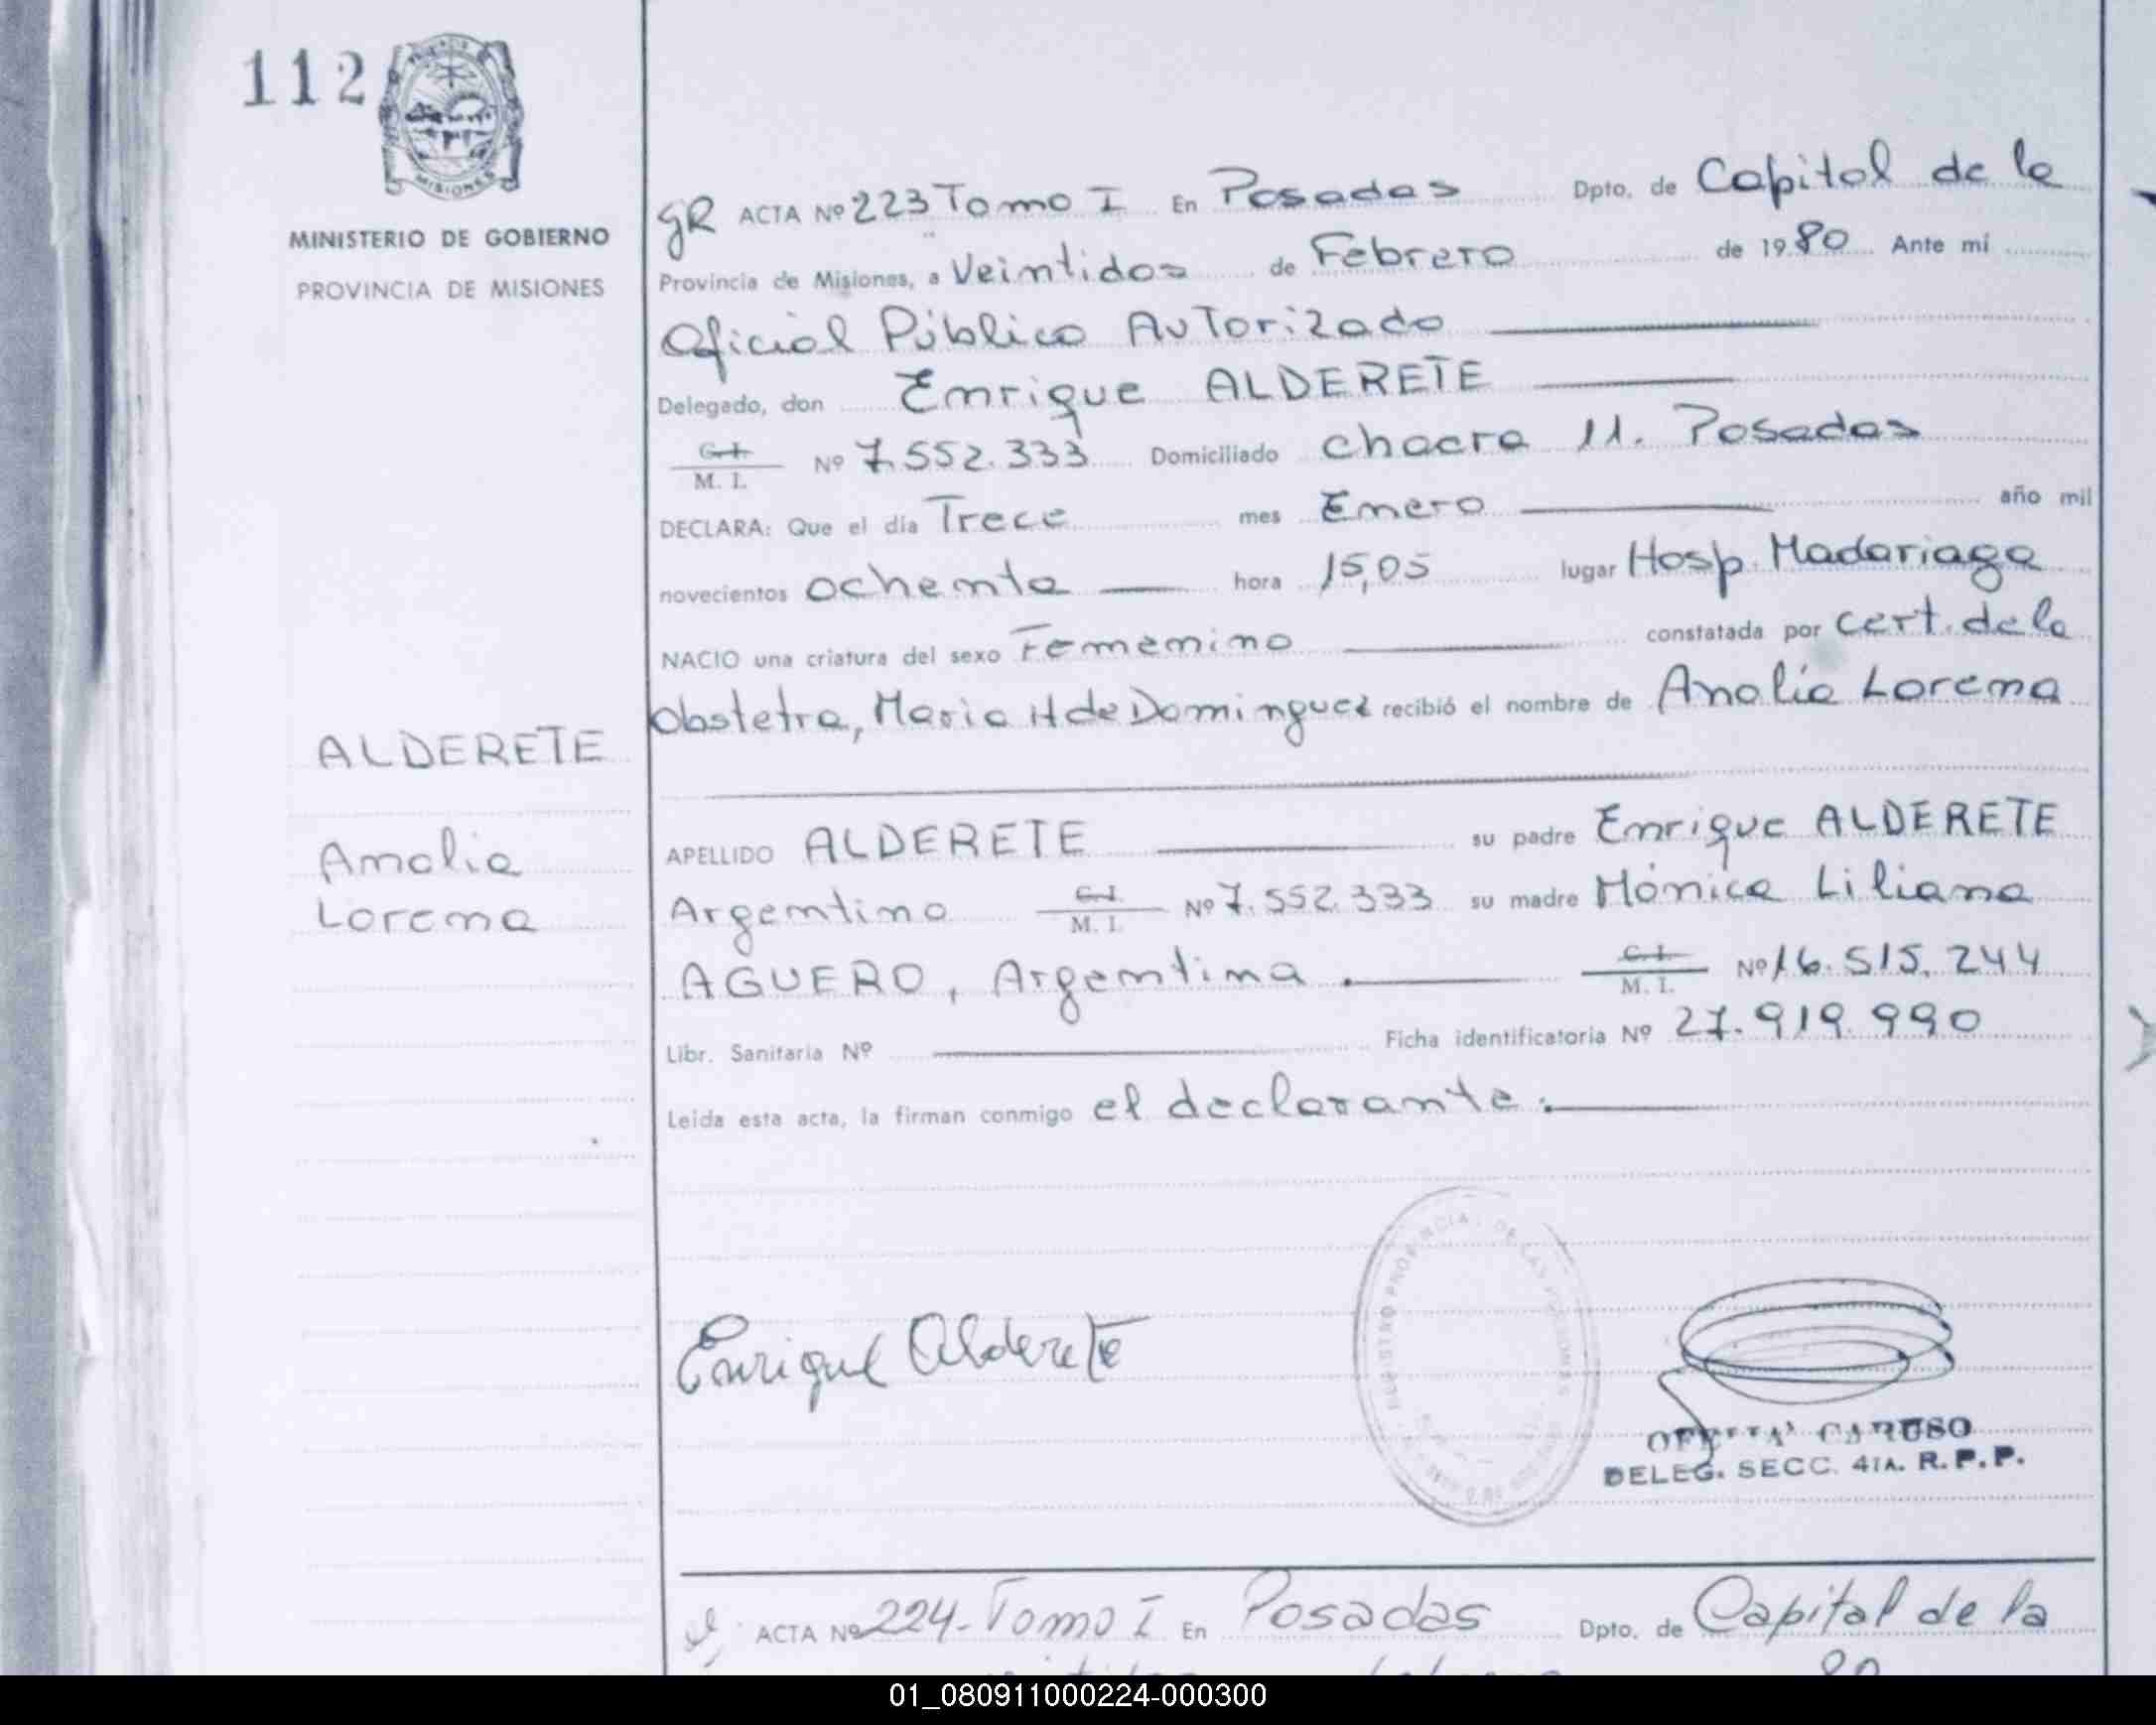 112
MISIONES
MINISTERIO DE GOBIERNO
PROVINCIA DE MISIONES
ALDERETE
Analia
Lorena
gR ACTA Nº 223 Tomo I En Posadas Dpto. de Capital de la
Provincia de Misiones, a Veintidos de Febrero de 1980 Ante mí
Oficial Público Autorizado
Delegado, don Enrique ALDERETE
C. I. M. I. Nº 7.552.333 Domiciliado chacra 11. Posadas
DECLARA: Que el día Trece mes Enero año mil
novecientos ochenta hora 15,05 lugar Hosp. Madariaga
NACIO una criatura del sexo Femenino constatada por cert. de la
Obstetra, Maria H de Dominguez recibió el nombre de Analía Lorena
APELLIDO ALDERETE su padre Enrique ALDERETE
Argentino C. I. M. I. Nº 7.552.333 su madre Mónica Liliana
AGUERO, Argentina. C. I. M. I. Nº 16.515.244
Libr. Sanitaria Nº Ficha identificatoria Nº 27.919.990
Leída esta acta, la firman conmigo el declarante.
Enrique Alderete
REGISTRO PROVINCIAL DE LAS PERSONAS
CARUSO
DELEG. SECC. 4TA. R.P.P.
ACTA Nº 224- Tomo I En Posadas Dpto. de Capital de la
01_080911000224-000300